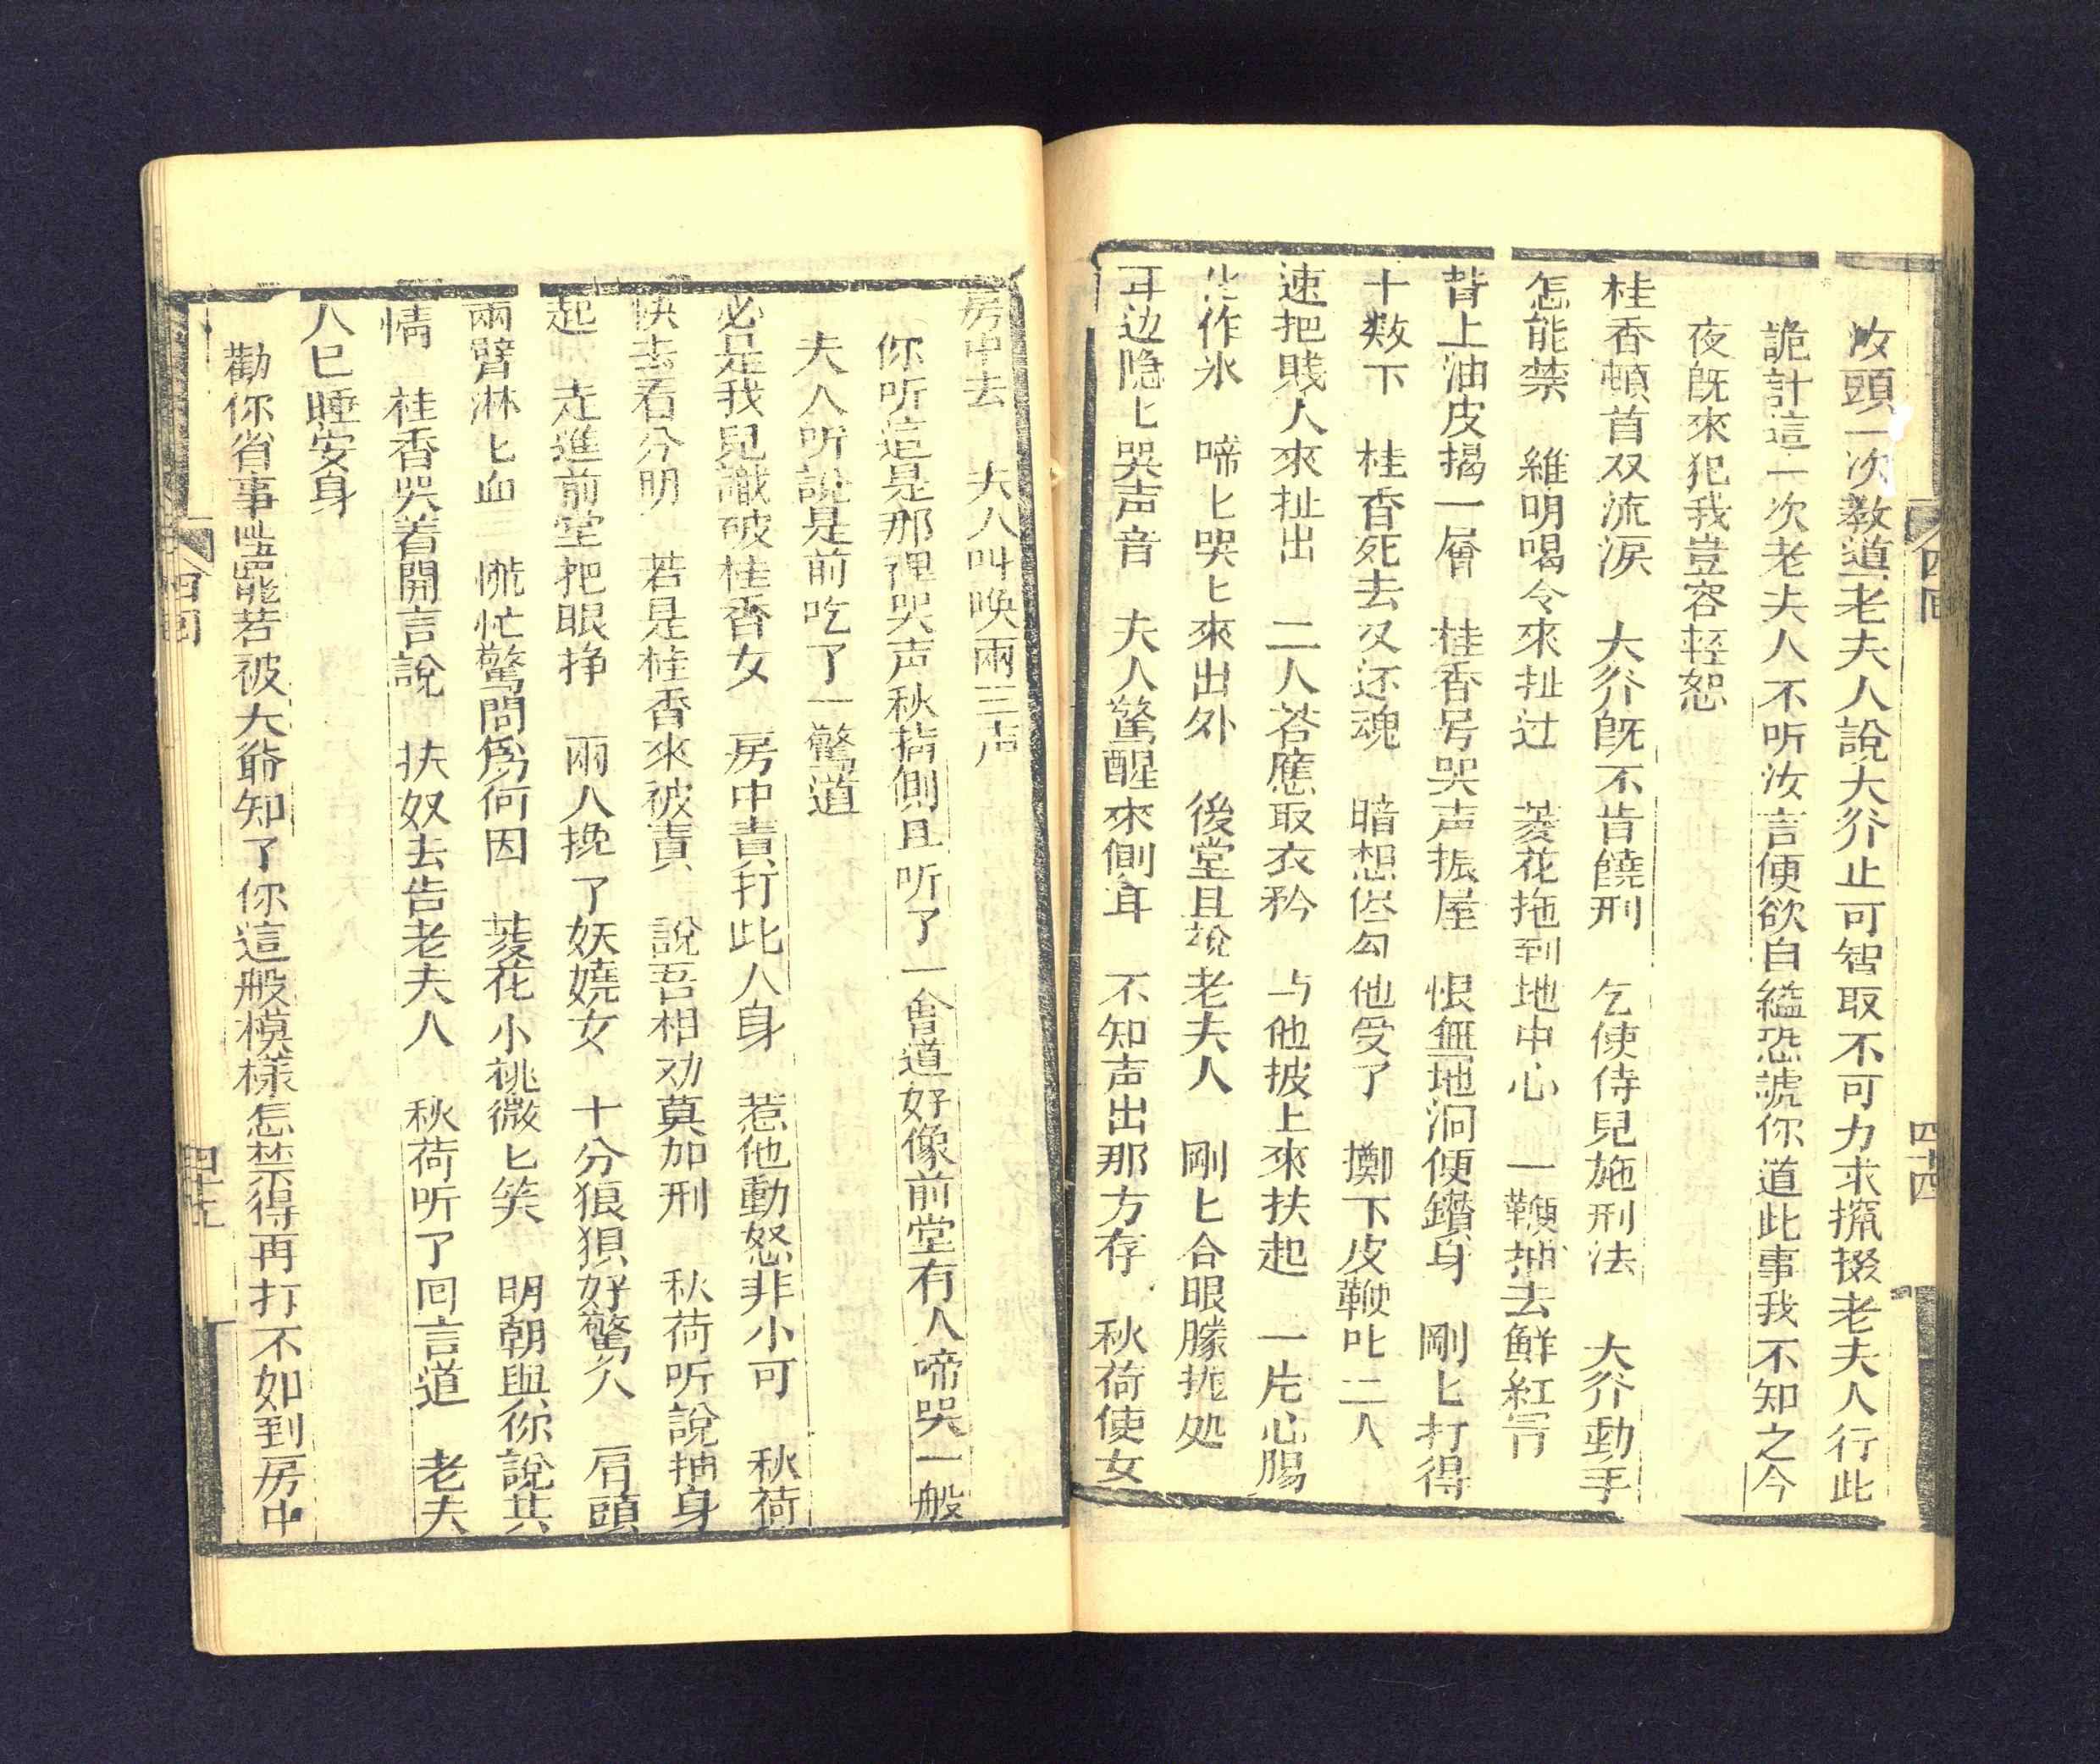 汝頭一次教道老夫人說大爷止可智取不可力求攛掇老夫人行此
詭計這一次老夫人不听汝言便欲自縊恐諕你道此事我不知之今
夜既來犯我豈容輕恕
桂香頓首双流淚　大爷既不肯饒刑　乞使侍兒施刑法　大爷動手
怎能禁　維明喝令來扯过　菱花拖到地中心　一鞭抽去鮮紅冐
背上油皮揭一層　桂香号哭声振屋　恨無地洞便鑽身　剛匕打得
十数下　桂香死去又还魂　暗想侭勾他受了　擲下皮鞭叱二人
速把賎人來扯出　二人荅應取衣衿　与他披上來扶起　一片心腸
化作氷　啼匕哭匕來出外　後堂且說老夫人　剛匕合眼朦朧処
耳边隐匕哭声音　夫人驚醒來側耳　不知声出那方存　秋荷使女
房中去　夫人叫喚兩三声
你听這是那裡哭声秋荷側且听了一會道好像前堂有人啼哭一般
夫人听說是前吃了一驚道
必是我兒識破桂香女　房中責打此人身　惹他動怒非小可　秋荷
快去看分明　若是桂香來被責　說吾相劝莫加刑　秋荷听說抽身
起　走進前堂把眼挣　兩人挽了妖嬈女　十分狼狽好驚人　肩頭
兩臂淋匕血　慌忙驚問爲何因　菱花小桃微匕笑　明朝與你說共
情　桂香哭着開言說　扶奴去告老夫人　秋荷听了回言道　老夫
人已睡安身
勸你省事些罷若被大爺知了你這般模樣怎禁得再打不如到房中
四回
四十四
四回
四十五